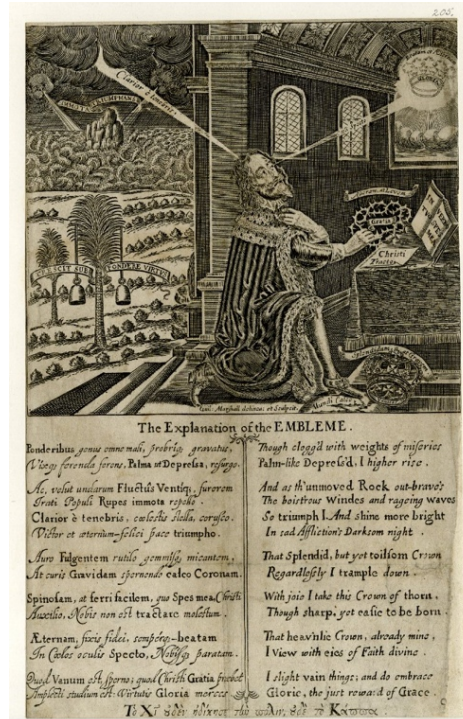 205.
Clarior è tenebris
IMMOTA TRIUMPHANS
CRESCIT SUB PONDERE VIRTUS
Asperam at Levem
Gratia
IN VERBO TUO SPES MEA
Christi Tractate
Mundi Calco
Guil: Marshall delineavit et Sculpsit.
The Explanation of the EMBLEME.
Ponderibus genus omne mali, probriq gravatus,
Vixq ferenda ferens, Palma ut Depressa, resurgo.
Ac, velut undarum Fluctûs Ventiqʒ, furorem
Irati Populi Rupes immota repello.
Clarior è tenebris, cœlestis stella, corusco.
Victor et æternum-felici pace triumpho.
Auro Fulgentem rutilo gemmisqʒ micantem,
At curis Gravidam spernendo calco Coronam.
Spinosam, at ferri facilem, quo Spes mea, Christi
Auxilio, Nobis non est tractare molestum.
Æternam, fixis fidei, semperqʒ-beatam
In Cœlos oculis Specto, Nobisqʒ paratam.
Quod Vanum est, sperno; quod Christi Gratia præbet
Amplecti studium est: Virtutis Gloria merces
Though clogg'd with weights of miseries
Palm-like Depress'd, I higher rise.
And as th'unmoved Rock out-brave's
The boistrous Windes and rageing waves
So triumph I. And shine more bright
In sad Affliction's Darksom night.
That Splendid, but yet toilsom Crown
Regardlessly I trample down.
With joie I take this Crown of thorn,
Though sharp, yet easie to be born.
That heav'nlie Crown, already mine,
I View with eies of Faith divine.
I slight vain things; and do embrace
Glorie, the just reward of Grace.
Τὸ Χῖ οὐδὲν ἠδίκησε τὴν πόλιν, οὐδὲ τὸ Κάππα.